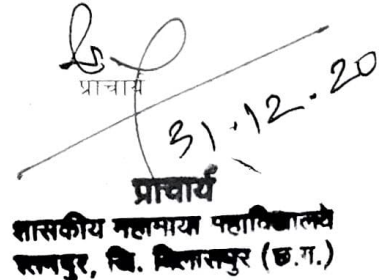 प्राचार्य
31.12.20
प्राचार्य
शासकीय महामाया महाविद्यालय
रतनपुर, जि. बिलासपुर (छ.ग.)